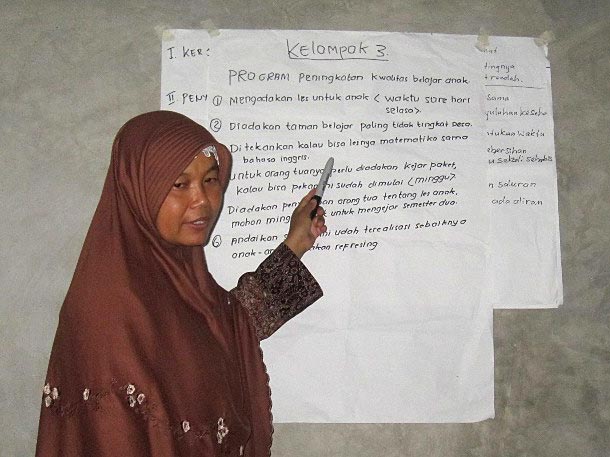 Kelompok 3.
PROGRAM Peningkatan kwalitas belajar anak.
① Mengadakan les untuk anak < waktu sore hari
selasa >
② Diadakan taman belajar paling tidak tingkat Desa.
Ditekankan kalau bisa lesnya matematika sama
bahasa inggris.
untuk orang tuanya perlu diadakan kejar paket,
kalau bisa pekan ini sudah dimulai (minggu)
Diadakan orang tua tentang les anak.
mohon untuk mengejar semester dua.
⑥ Andaikan ini udah terealisasi sebaiknya
refresing
I. KER:
II PENY
tingnya
rendah.
sama
tukan waktu
bersihan
n saluran